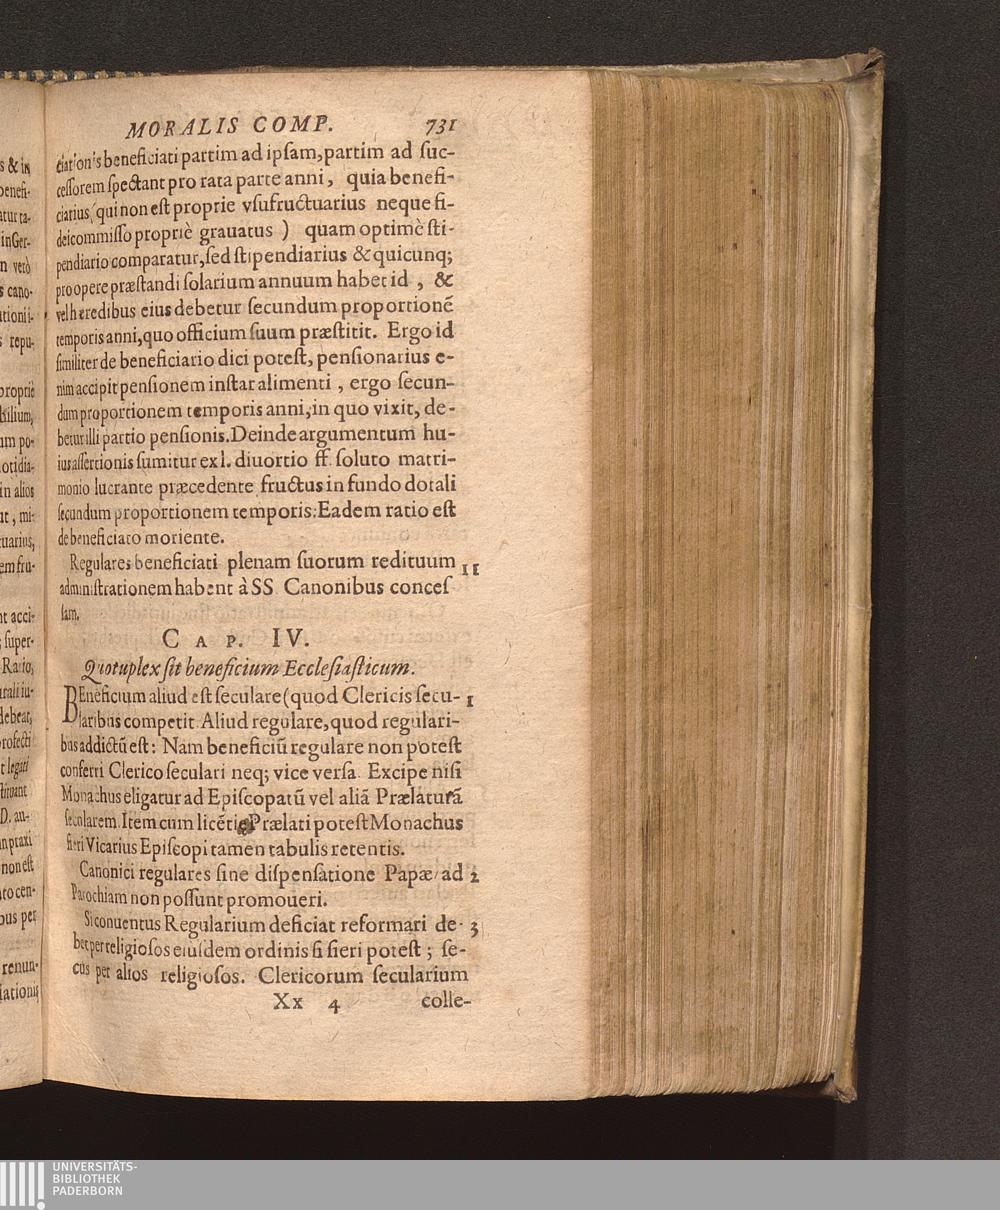 MORALIS COMP. 731
ciationis beneficiati partim ad ipſam, partim ad ſuc-
ceſſorem ſpectant pro rata parte anni, quia benefi-
ciarius, (qui non eſt proprie vſufructuarius neque fi-
deicommiſſo propriè grauatus) quam optimè ſti-
pendiario comparatur, ſed ſtipendiarius & quicunq;
pro opere præſtandi ſolarium annuum habet id, &
vel heredibus eius debetur ſecundum proportionē
temporis anni, quo officium ſuum præſtitit. Ergo id
ſimiliter de beneficiario dici poteſt, penſionarius e-
nim accipit penſionem inſtar alimenti, ergo ſecun-
dum proportionem temporis anni, in quo vixit, de-
betur illi partio penſionis. Deinde argumentum hu-
ius aſſertionis ſumitur ex l. diuortio ff. ſoluto matri-
monio lucrante præcedente fructus in fundo dotali
ſecundum proportionem temporis: Eadem ratio eſt
de beneficiato moriente.
Regulares beneficiati plenam ſuorum redituum 11
adminiſtrationem habent à SS Canonibus conceſ
ſam.
CAP. IV.
Quotuplex ſit beneficium Eccleſiaſticum.
BEneficium aliud eſt ſeculare (quod Clericis ſecu- 1
laribus competit Aliud regulare, quod regulari-
bus addictū eſt: Nam beneficiū regulare non poteſt
conferri Clerico ſeculari neq; vice verſa. Excipe niſi
Monachus eligatur ad Epiſcopatū vel aliā Prælaturā
ſecularem. Item cum licētia Prælati poteſt Monachus
fieri Vicarius Epiſcopi tamen tabulis retentis.
Canonici regulares ſine diſpenſatione Papæ ad 2
Parochiam non poſſunt promoueri.
Si conuentus Regularium deficiat reformari de- 3
bet per religioſos eiuſdem ordinis ſi fieri poteſt; ſe-
cus per alios religioſos. Clericorum ſecularium
Xx 4 colle-
UNIVERSITÄTS-
BIBLIOTHEK
PADERBORN